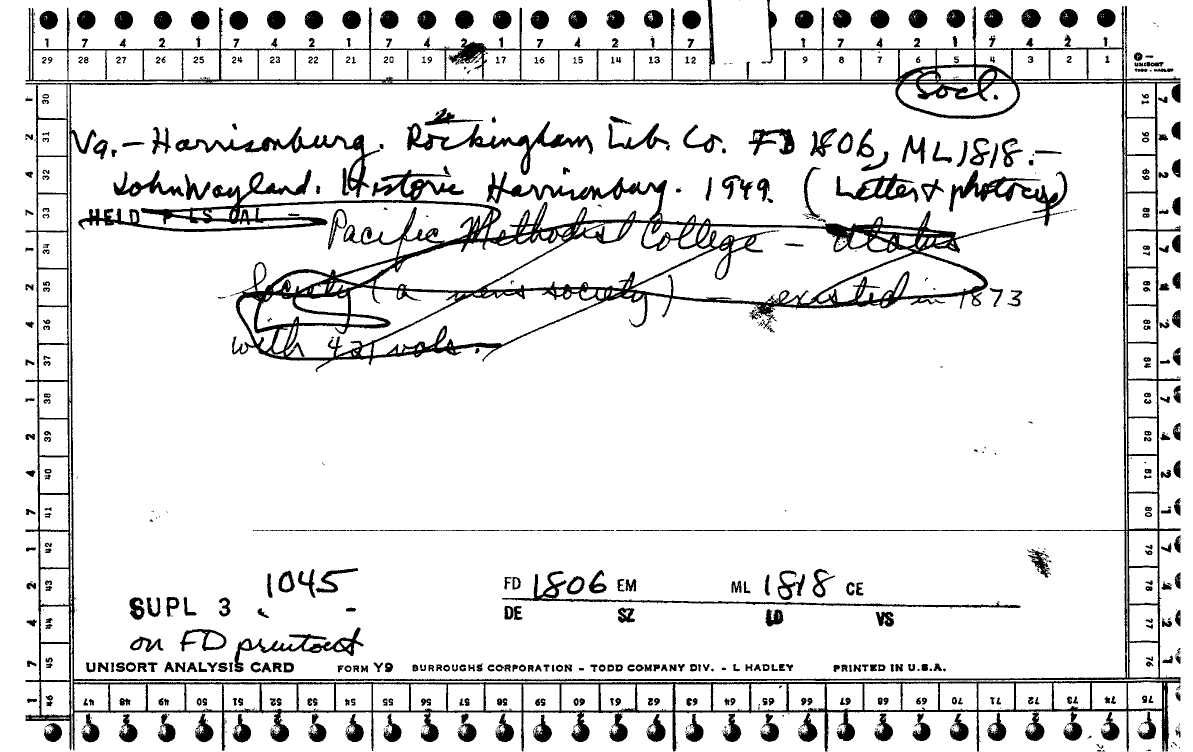 1 7 4 2 1 7 4 2 1 7 4 2 1 7 4 2 1 7 4 2 1 7 4 2 1 7 4 2 1
29 28 27 26 25 24 23 22 21 20 19 17 16 15 14 13 12 9 8 7 6 5 4 3 2 1
UNISORT
TODD - HADLEY
Socl.
Va. - Harrisonburg. Rockingham Lib. Co. FD 1806, ML 1818. -
John Wayland. Historic Harrisonburg. 1949. (Letter & photocop)
HELD
Pacific Methodist College -
Society (a men's society) - existed in 1873
with 421 vols.
1045
SUPL 3
on FD printout
FD 1806 EM ML 1818 CE
DE SZ LD VS
UNISORT ANALYSIS CARD FORM Y9 BURROUGHS CORPORATION - TODD COMPANY DIV. - L HADLEY PRINTED IN U.S.A.
30 31 32 33 34 35 36 37 38 39 40 41 42 43 44 45 46
47 48 49 50 51 52 53 54 55 56 57 58 59 60 61 62 63 64 65 66 67 68 69 70 71 72 73 74 75
91 90 89 88 87 86 85 84 83 82 81 80 79 78 77 76